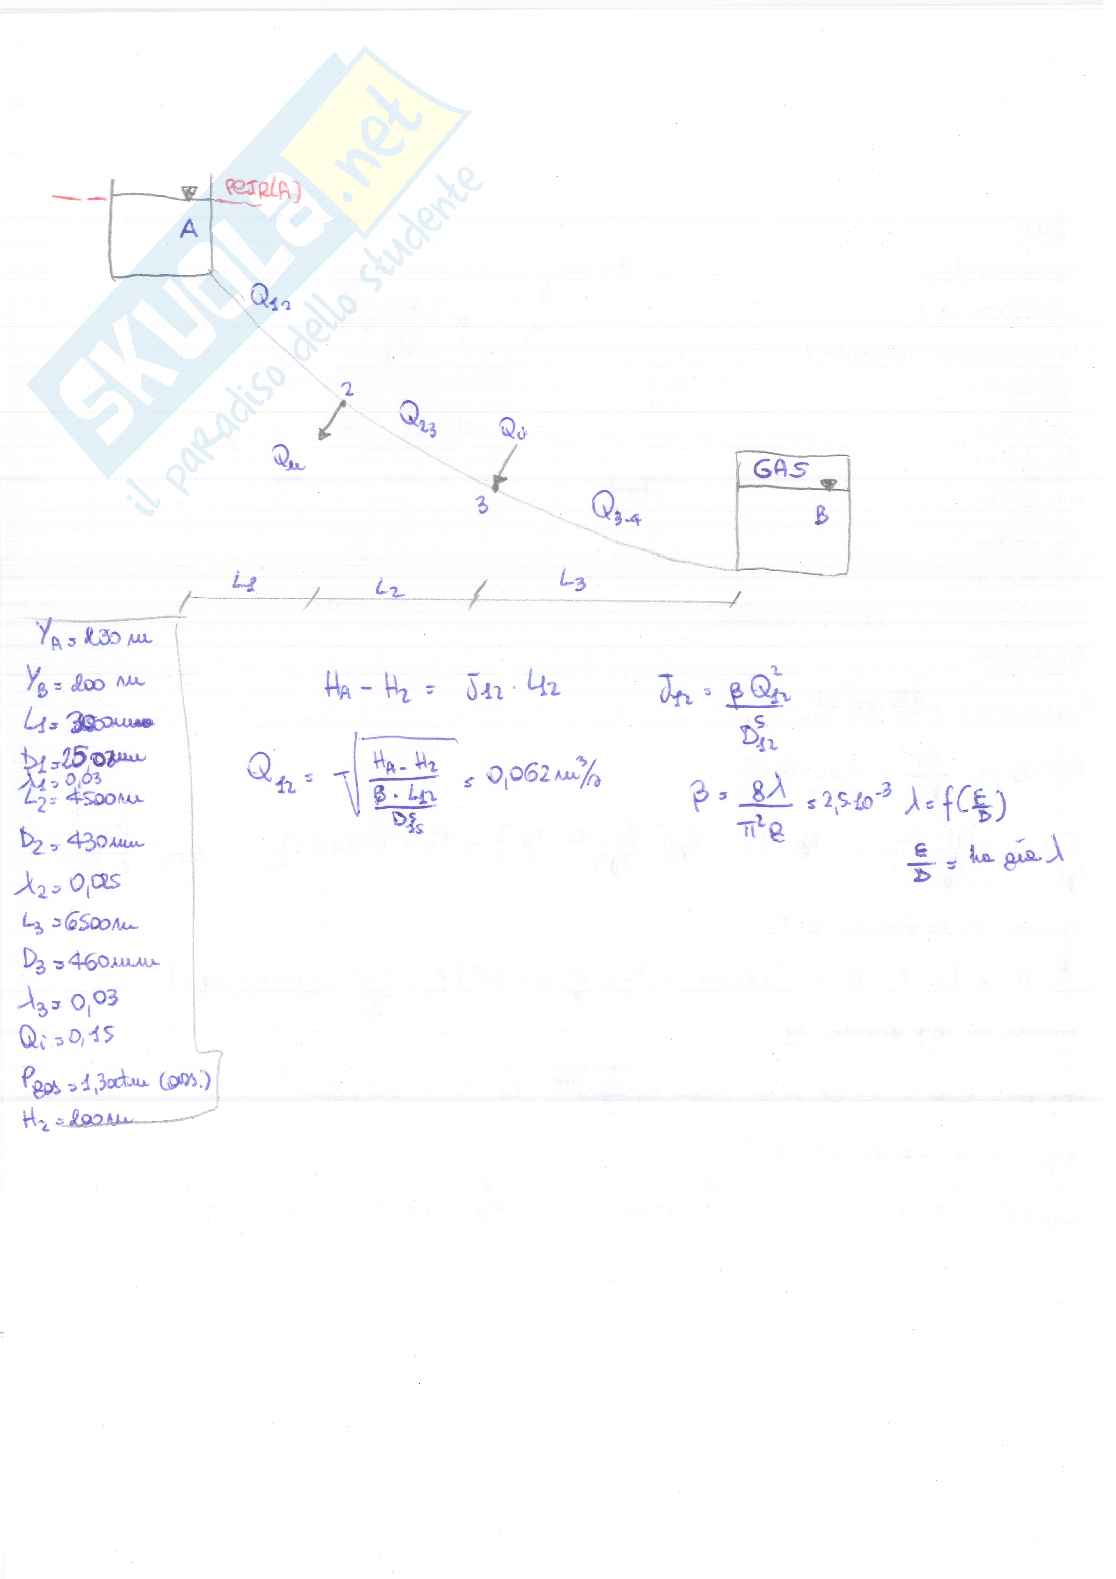 SKUOLA.net
il paradiso dello studente
PCIR(A)
A
Q₁₂
2
Q₂₃
Qᵤ
Qᵢ
3
Q₃₋₄
GAS
B
L1
L2
L3
Y_A = 230 m
Y_B = 200 m
L1 =
D1 = 250 mm
λ1 = 0,03
L2 = 4500 m
D2 = 430 mm
λ2 = 0,025
L3 = 6500 m
D3 = 460 mm
λ3 = 0,03
Qi = 0,15
Pgas = 1,3 atm (ass.)
H2 = 200 m
H_A - H_2 = J_12 · L_12
J_12 = β Q_12² / D_12⁵
Q_12 = √((H_A - H_2) / (β · L_12 / D⁵)) = 0,062 m³/s
β = 8λ / π² g = 2,5·10⁻³ λ = f(ε/D)
ε/D = ho già λ